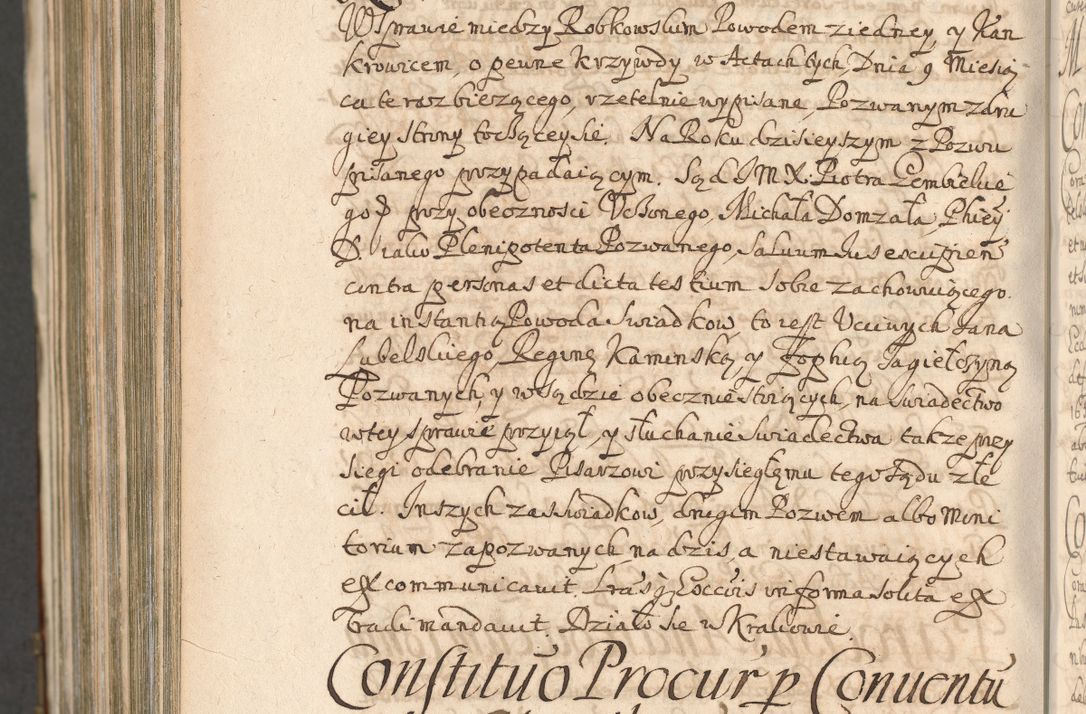 W Sprawie między Robkowskim Powodem z iedney, y Kan
krowicem, o pewne krzywdy w Actach tych, Dnia 9 Miesią
ca teraz bieżącego, rzetelnie wypisane, Pozwanym z dru
giey strony toczącey się. Na Roku dzisieyszym z Pozwu
pisanego przypadaiącym. Sąd J M X. Piotra Gembickie
go przy obecznosci Uczonego, Michała Domzała, Phiey
D. iako Plenipotenta Pozwanego, Saluum Jus excipien
contra personas et dicta testium sobie zachowuiącego.
na instantią Powoda Swiadkow, to iest Uczciwych Jana
Lubelskiego, Reginę Kaminską, y Zophią Jagiełczyną
Pozwanych, y w Sądzie obecznie stoiących, na swiadectwo
w tey sprawie przyiął, y słuchanie swiadectwa także przy
siegi odebranie Pisarzowi przysięgłemu tego Sądu zle
cił. Inszych zas swiadkow, drugim Pozwem albo Moni
torium zapozwanych, na dzis, a niestawaiących
excommunicavit. Lras in forma solita ex
tradi mandavit. Działo się w Krakowie.
Constituo Procur p Conuentu